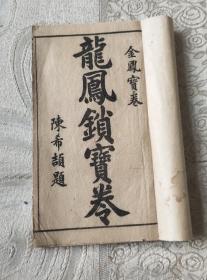 金鳳寶卷
龍鳳鎖寶卷
陳希頡題